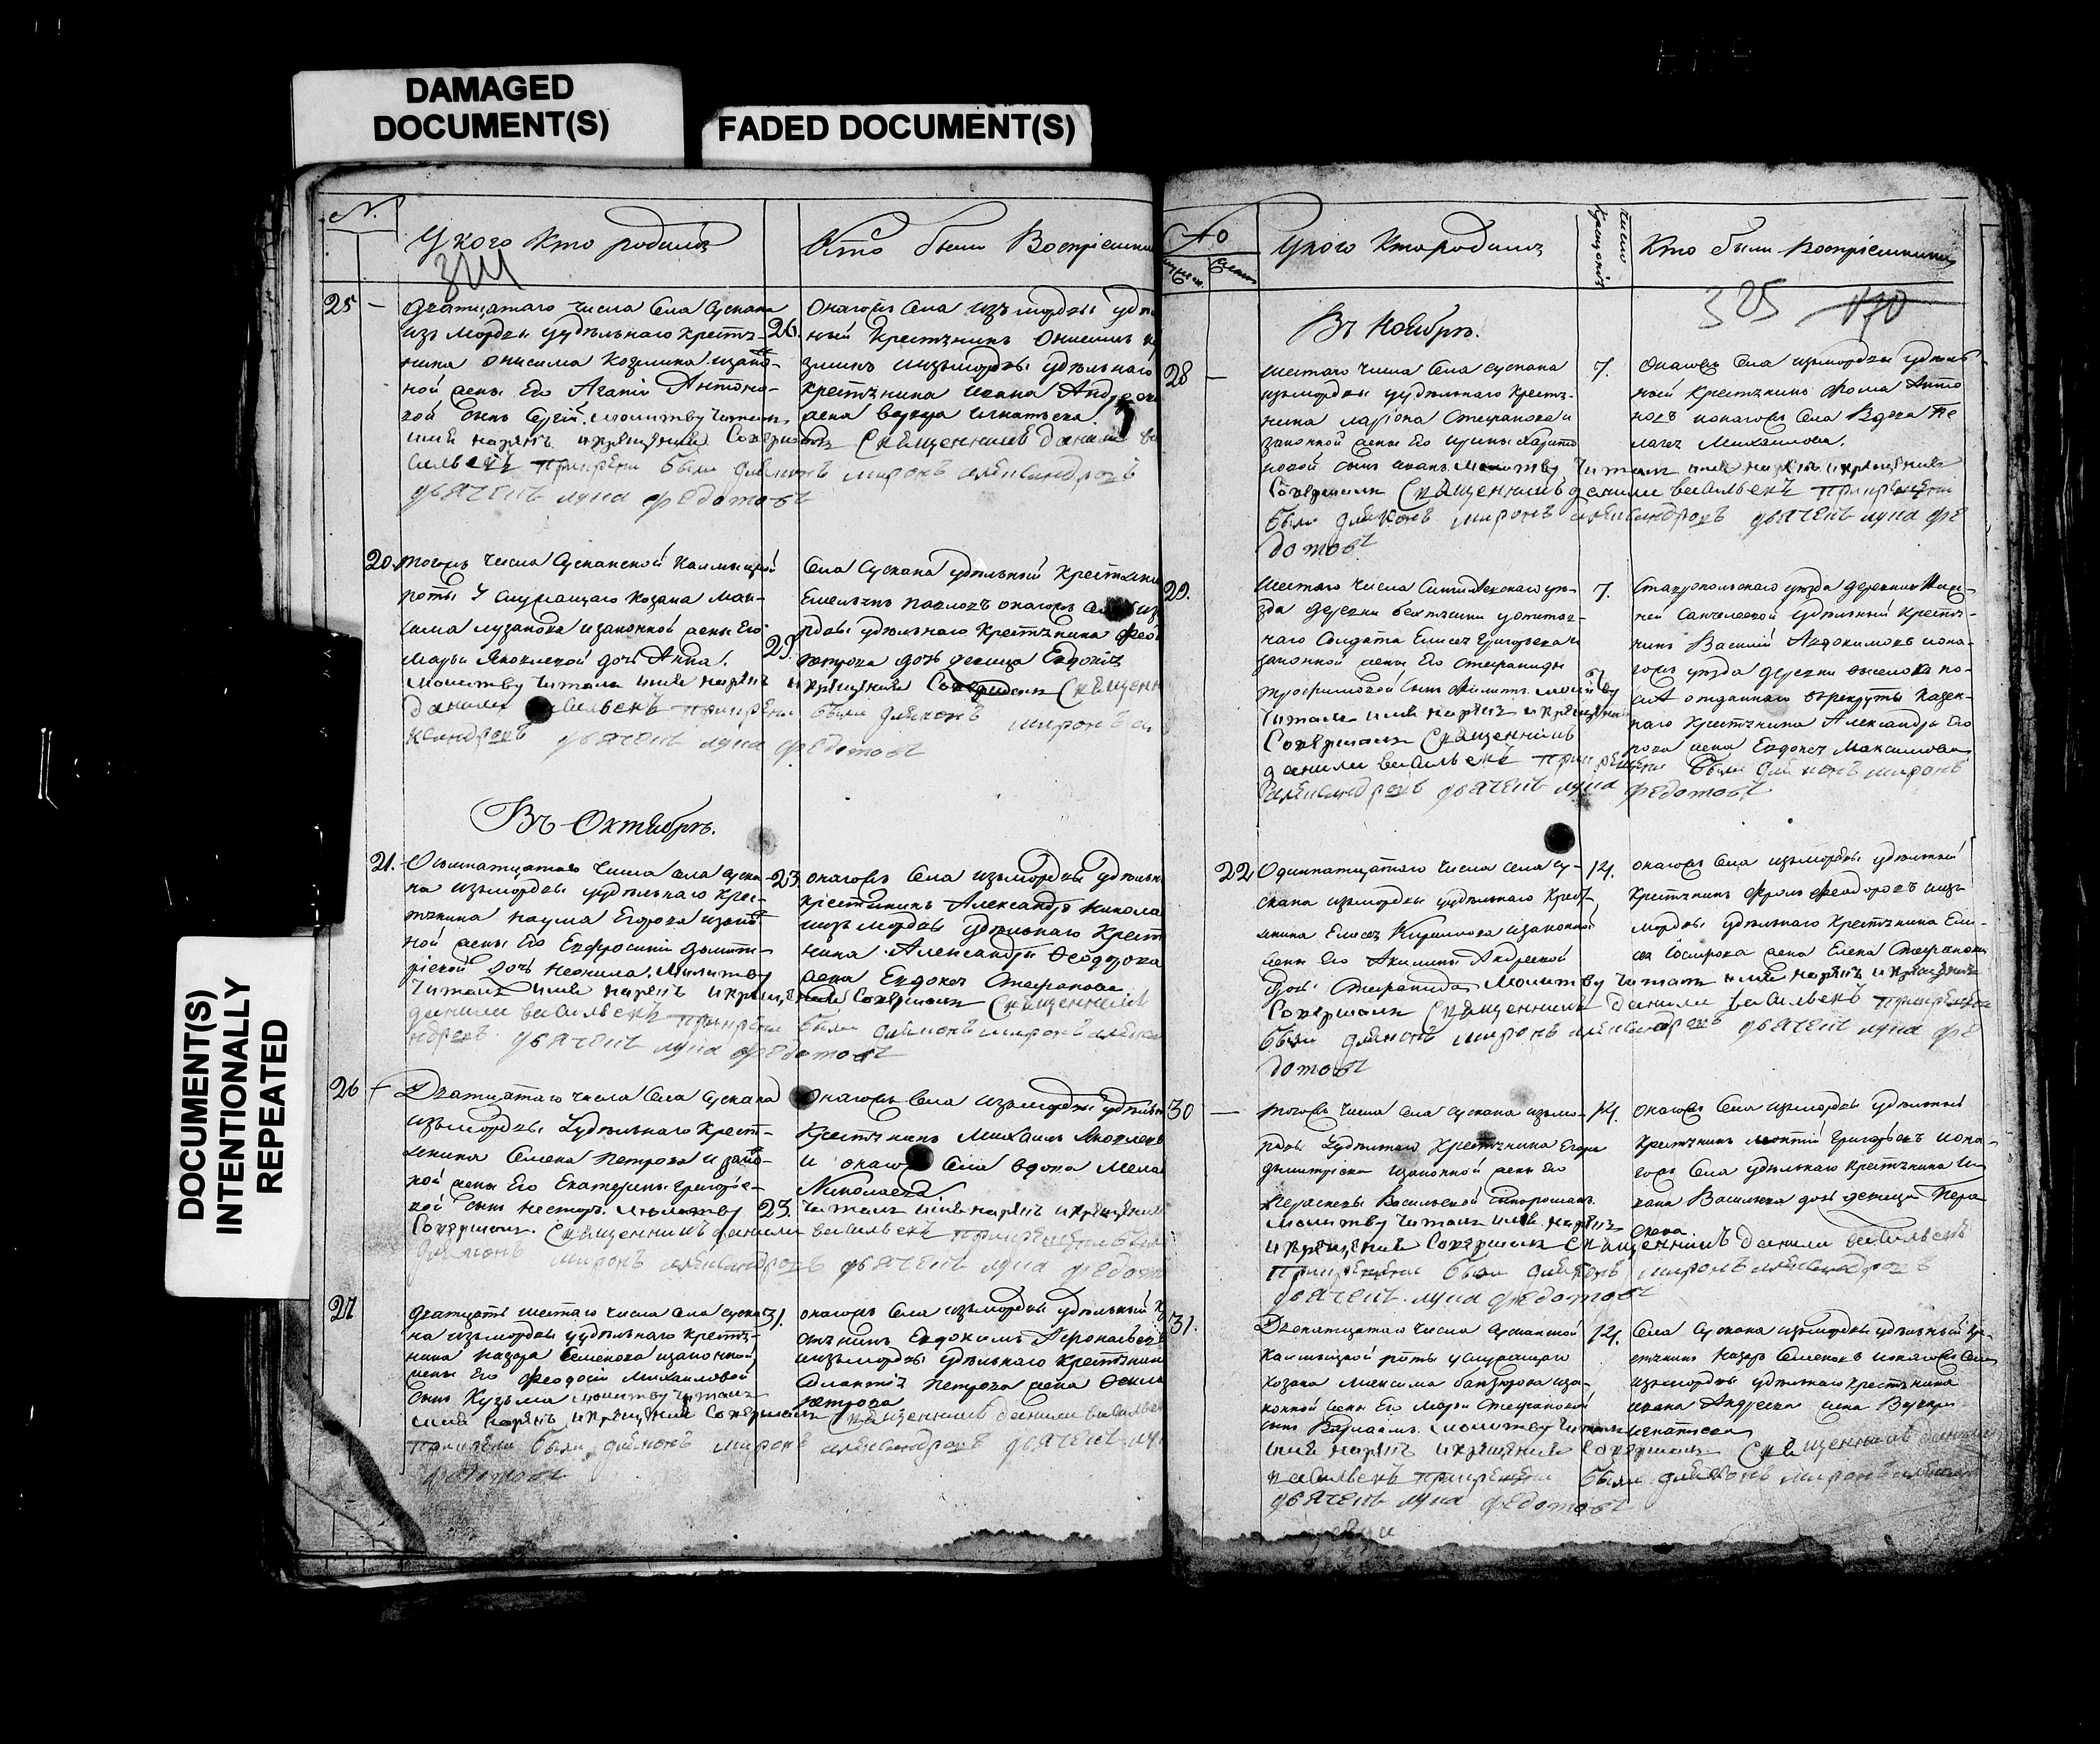 DAMAGED
DOCUMENT(S)
FADED DOCUMENT(S)
DOCUMENT(S)
INTENTIONALLY
REPEATED
№
У кого Кто родился
Кто были Воспріемники
324
25 –
Дватцатаго числа Села Сускана
изъ мордвы удѣльнаго крестья-
нина Онисима Козмина и закон-
ной жены Его Агафіи Антоно-
вой сынъ Сергій. молитву читалъ
имя нарекъ и крещеніе Совершалъ Священникъ данила ва
сильевъ при крещеніи были діяконъ миронъ александровъ
дьячекъ лука федотовъ
26.
Онагожъ Села изъ мордвы
ный крестьянинъ Онисимъ
и изъ мордвы удѣльнаго
крестьянина Ивана Андреева
жена Игнатьева
20.
тогожъ числа Сусканской Калмыцкой
роты У служащаго козака Мак-
сима лузанова и законной жены Его
Марьи Яковлевой дочь Анна.
молитву читалъ имя нарекъ и крещеніе Совершалъ Священн
данила васильевъ при крещеніи были діяконъ миронъ
ксандровъ дьячекъ лука федотовъ
Села Сускана удѣльный крестьянин
Емельянъ Павловъ онагожъ Села изъ
рдвы удѣльнаго крестьянина
петрова дочь девица Евдокія
Въ Октябрѣ.
21.
Осьмнатцатаго числа Села Суска-
на изъ мордвы удѣльнаго крес-
тьянина Наума Егорова и закон-
ной жены Его Евфросиніи Дмит-
ріевой дочь Неонила. Молитву
читалъ имя нарекъ и крещеніе Совершалъ Священникъ
данила васильевъ при крещеніи были діяконъ миронъ алекса
ндровъ дьячекъ лука федотовъ
23.
онагожъ Села изъ мордвы удѣльн
крестьянинъ Александръ Никола
и изъ мордвы удѣльнаго крест
нина Александра Феодорова
жена Евдокія Стефанова
26 –
Дватцатаго числа Села Сускана
изъ мордвы удѣльнаго крест-
янина Семена Петрова и закон-
ной жены Его Екатерины Григорье-
вой сынъ Несторъ. молитву читалъ имя нарекъ и крещеніе
Совершалъ. Священникъ данила васильевъ при крещеніи были
діяконъ миронъ александровъ дьячекъ лука федотов
23.
Онагожъ Села изъ мордвы удѣльн
крестьянинъ Михаилъ Яковлевъ
и онагожъ Села вдова
Николаева
27
Дватцать шестаго числа Села Суска-
на изъ мордвы удѣльнаго крестья-
нина Назара Семенова и законной
жены Его Феодосіи Михайловой
сынъ Кузьма молитву читалъ
имя нарекъ и крещеніе Совершалъ Священникъ данила васильев
при крещеніи были діяконъ миронъ александровъ дьячекъ лук
федотовъ
31.
онагожъ Села изъ мордвы удѣльный
янинъ Евдокимъ
и изъ мордвы удѣльнаго крестьянин
Петрова жена
петрова
У кого Кто родился
Число крещенія
Кто были Воспріемники
325 470
Въ Ноябрѣ.
28 –
Шестаго числа Села Сускана
изъ мордвы удѣльнаго крестья-
нина Ларіона Стефанова и
законной жены Его Ирины Харито
новой сынъ Иванъ. молитву читалъ имя нарекъ и крещеніе
Совершалъ Священникъ данила васильевъ при крещеніи
были діяконъ миронъ александровъ дьячекъ лука фе
дотовъ
7.
Онагожъ Села изъ мордвы удѣль-
ный крестьянинъ Фома Анто
новъ и онагожъ Села Вдова Пе
лагея Михайлова.
29.
Шестаго числа Симбирскаго уѣ-
зда деревни у отстав-
наго Солдата Елисея Григорьева и
законной жены Его Стефаниды
Трофимовой сынъ Филиппъ. молитву
читалъ имя нарекъ и крещеніе
Совершалъ Священникъ
данила васильевъ при крещеніи были діяконъ миронъ
александровъ дьячекъ лука федотовъ
7.
Ставропольскаго уѣзда деревни
Санчелеевой удѣльный крестья-
нинъ Василій Авдокимовъ и она-
гожъ уѣзда деревни выселка
отданнаго в рекруты казен-
наго крестьянина Александра Его
рова жена Евдокія Максимова
22.
Одиннатцатаго числа Села Су-
скана изъ мордвы удѣльнаго Крест-
янина Елисея Кирилова и законной
жены Его Акилины Андреевой
дочь Стефанида молитву читалъ имя нарекъ и крещеніе
Совершалъ Священникъ данила васильевъ при крещеніи
были діяконъ миронъ александровъ дьячекъ лука фе
дотовъ
14.
онагожъ Села изъ мордвы удѣльный
крестьянинъ Фролъ Феодоровъ и изъ
мордвы удѣльнаго крестьянина Ели-
сея жена Елена Стефанова
30 –
тогожъ числа Села Сускана изъ мо-
рдвы удѣльнаго крестьянина Егора
Дмитріева и законной жены Его
Васильевой
молитву читалъ имя нарекъ
и крещеніе Совершалъ Священникъ данила васильевъ
при крещеніи были діяконъ миронъ александровъ
дьячекъ лука федотовъ
14.
онагожъ Села изъ мордвы удѣльный
крестьянинъ Григорьевъ и она-
гожъ Села удѣльнаго крестьянина И-
вана Васильева дочь девица Пара
скева.
31.
Двенатцатаго числа Сусканской
Калмыцкой роты у служащаго
козака Максима и за-
конной жены Его Марьи Стефановой
сынъ Варлаамъ. молитву читалъ
имя нарекъ и крещеніе Совершалъ Священникъ данила
васильевъ при крещеніи были діяконъ миронъ
дьячекъ лука федотовъ
14.
Села Сускана изъ мордвы удѣльный кре-
стьянинъ Назаръ Семеновъ и онагожъ Села
изъ мордвы удѣльнаго крестьянина
Ивана Андреева жена
Игнатьева